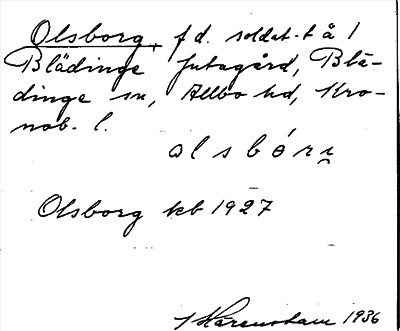 Olsborg, f d. soldat-t å 1
Blädinge Jutagård, Blä-
dinge sn, Allbo hd, Kro-
nob. l.
olsbórı
Olsborg kb 1927
1936